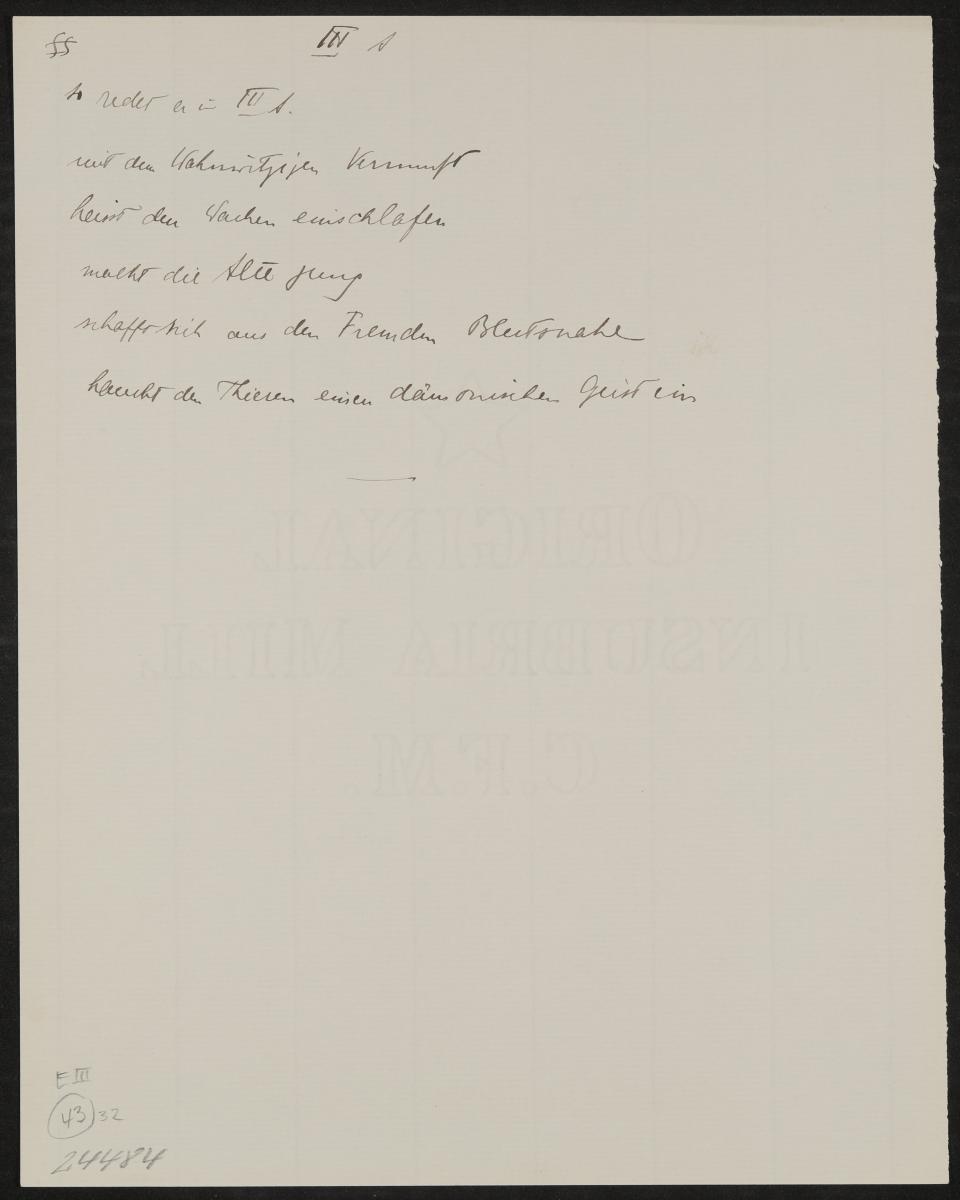 III A
so redet er in III A.
mit dem Wahnwitzigen Vernunft
heisst den Wachen einschlafen
macht die Alte jung
schafft sich aus den Fremden Blutsnahe
haucht den Thieren einen dämonischen Geist ein
ORIGINAL
INSUBRIA MILL
C.F.M.
E III
43 32
24484